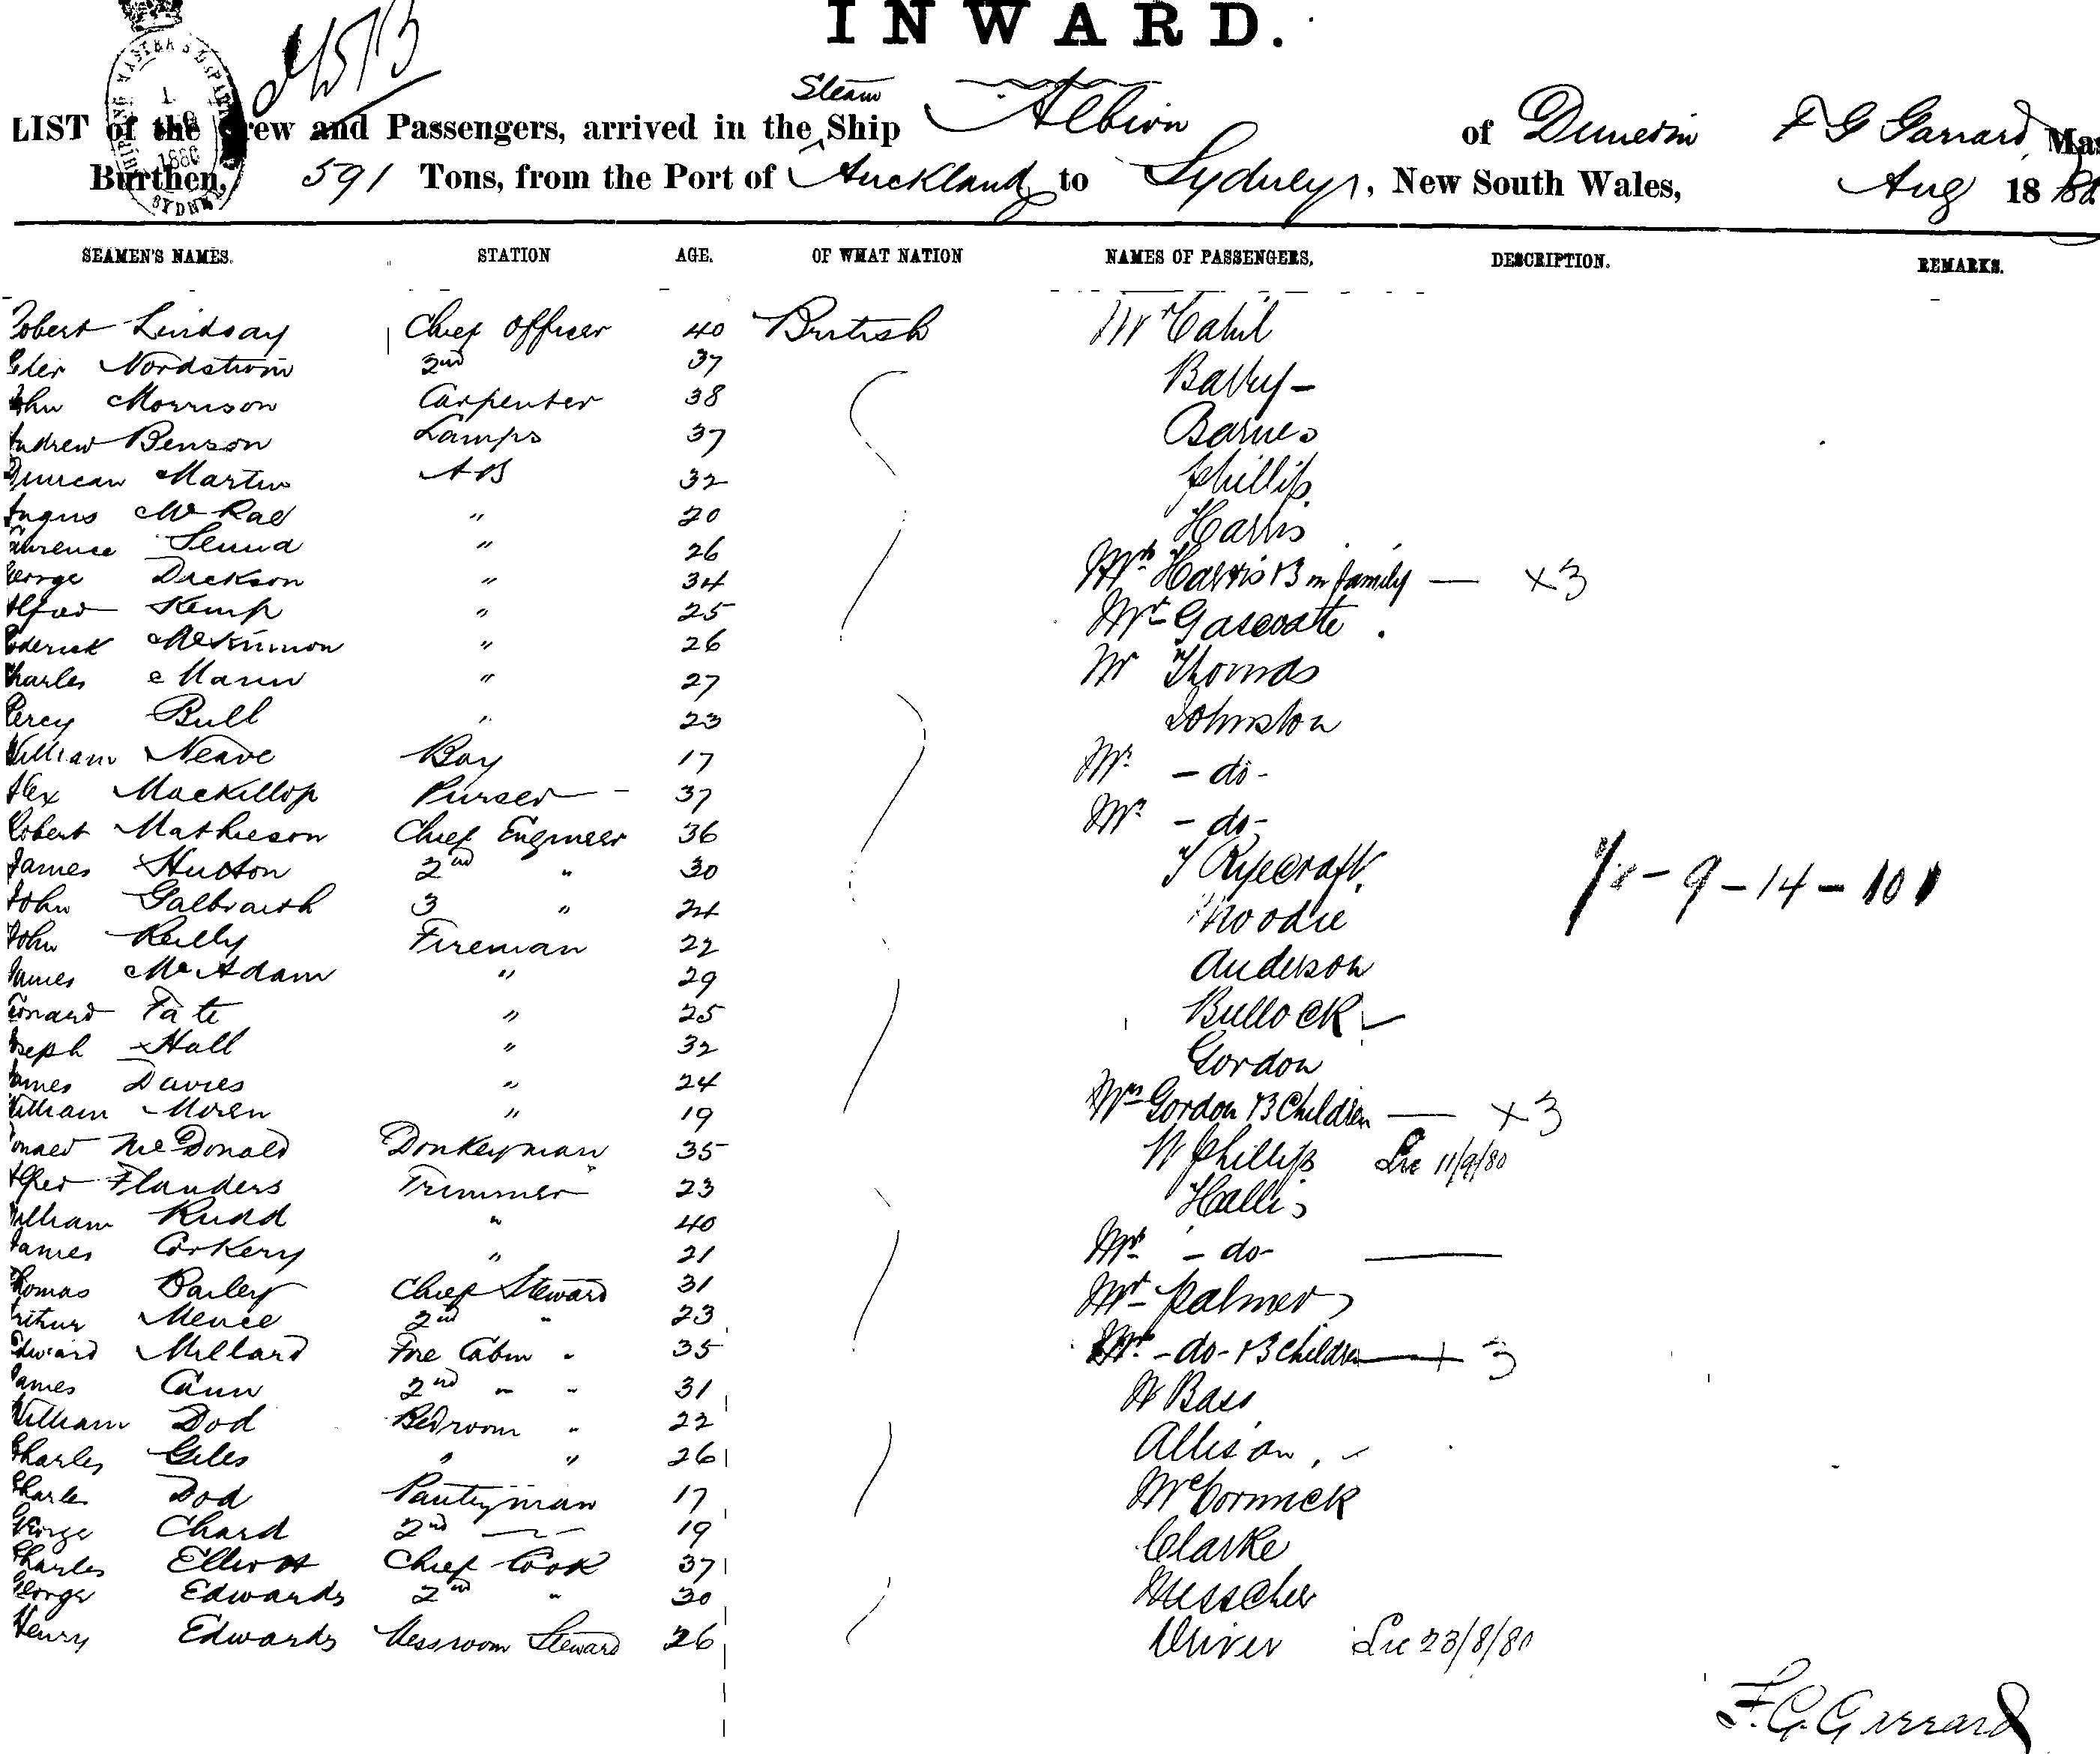 INWARD.
LIST of the Crew and Passengers, arrived in the Steam Ship Albion of Dunedin F G Garrard, Mas
Burthen, 591 Tons, from the Port of Auckland to Sydney, New South Wales, Aug 1880
SEAMEN'S NAMES. STATION AGE. OF WHAT NATION NAMES OF PASSENGERS, DESCRIPTION. REMARKS.
Robert Lindsay Chief Officer 40 British Mr Cahil
Peter Nordstrom 2nd 37 Barry -
John Morrison Carpenter 38 Barnes
Andrew Benson Lamps 37 Phillips
Duncan Martin AB 32 Harris
Angus McRae " 20 Mrs Harris & 3 in family — x3
Laurence " 26 Mr
George Dickson " 34 Mr Thomas
Alfred Kemp " 25 Johnston
Roderick McKinnon " 26 Mrs - do -
Charles Mann " 27 Mr - do -
Percy Bull " 23 T Ryecraft
William Neave Boy 17 Moodie
Alex MacKillop Purser 37 Anderson
Robert Mathieson Chief Engineer 36 Bullock
James Hutton 2nd " 30 Gordon
John Galbraith 3 " 24 Mrs Gordon & 3 Children — x3
John Reilly Fireman 22 W Phillips Lic 11/9/80
James McAdam " 29 Hallis
Leonard Tate " 25 Mrs - do -
Joseph Hall " 32 Mr Palmer
James Davies " 24 Mrs - do - & 3 Children — + 3
William Miren " 19 W Bass
Donald McDonald Donkeyman 35 Allison
Alfred Flanders Trimmer 23 McCormick
William Rudd " 40 Clarke
James Corkery " 21
Thomas Bailey Chief Steward 31 Driver Lic 23/8/80
Arthur Mence 2nd " 23
Edward Millard Fore Cabin " 35
James Cann 2nd " " 31
William Dod Bedroom " 22
Charles Giles " " 26
Charles Dod Pantryman 17
George Chard 2nd — 19
Charles Elliott Chief Cook 37
George Edwards 2nd " 30
Henry Edwards Messroom Steward 26
9 - 14 - 101
F. G. Garrard